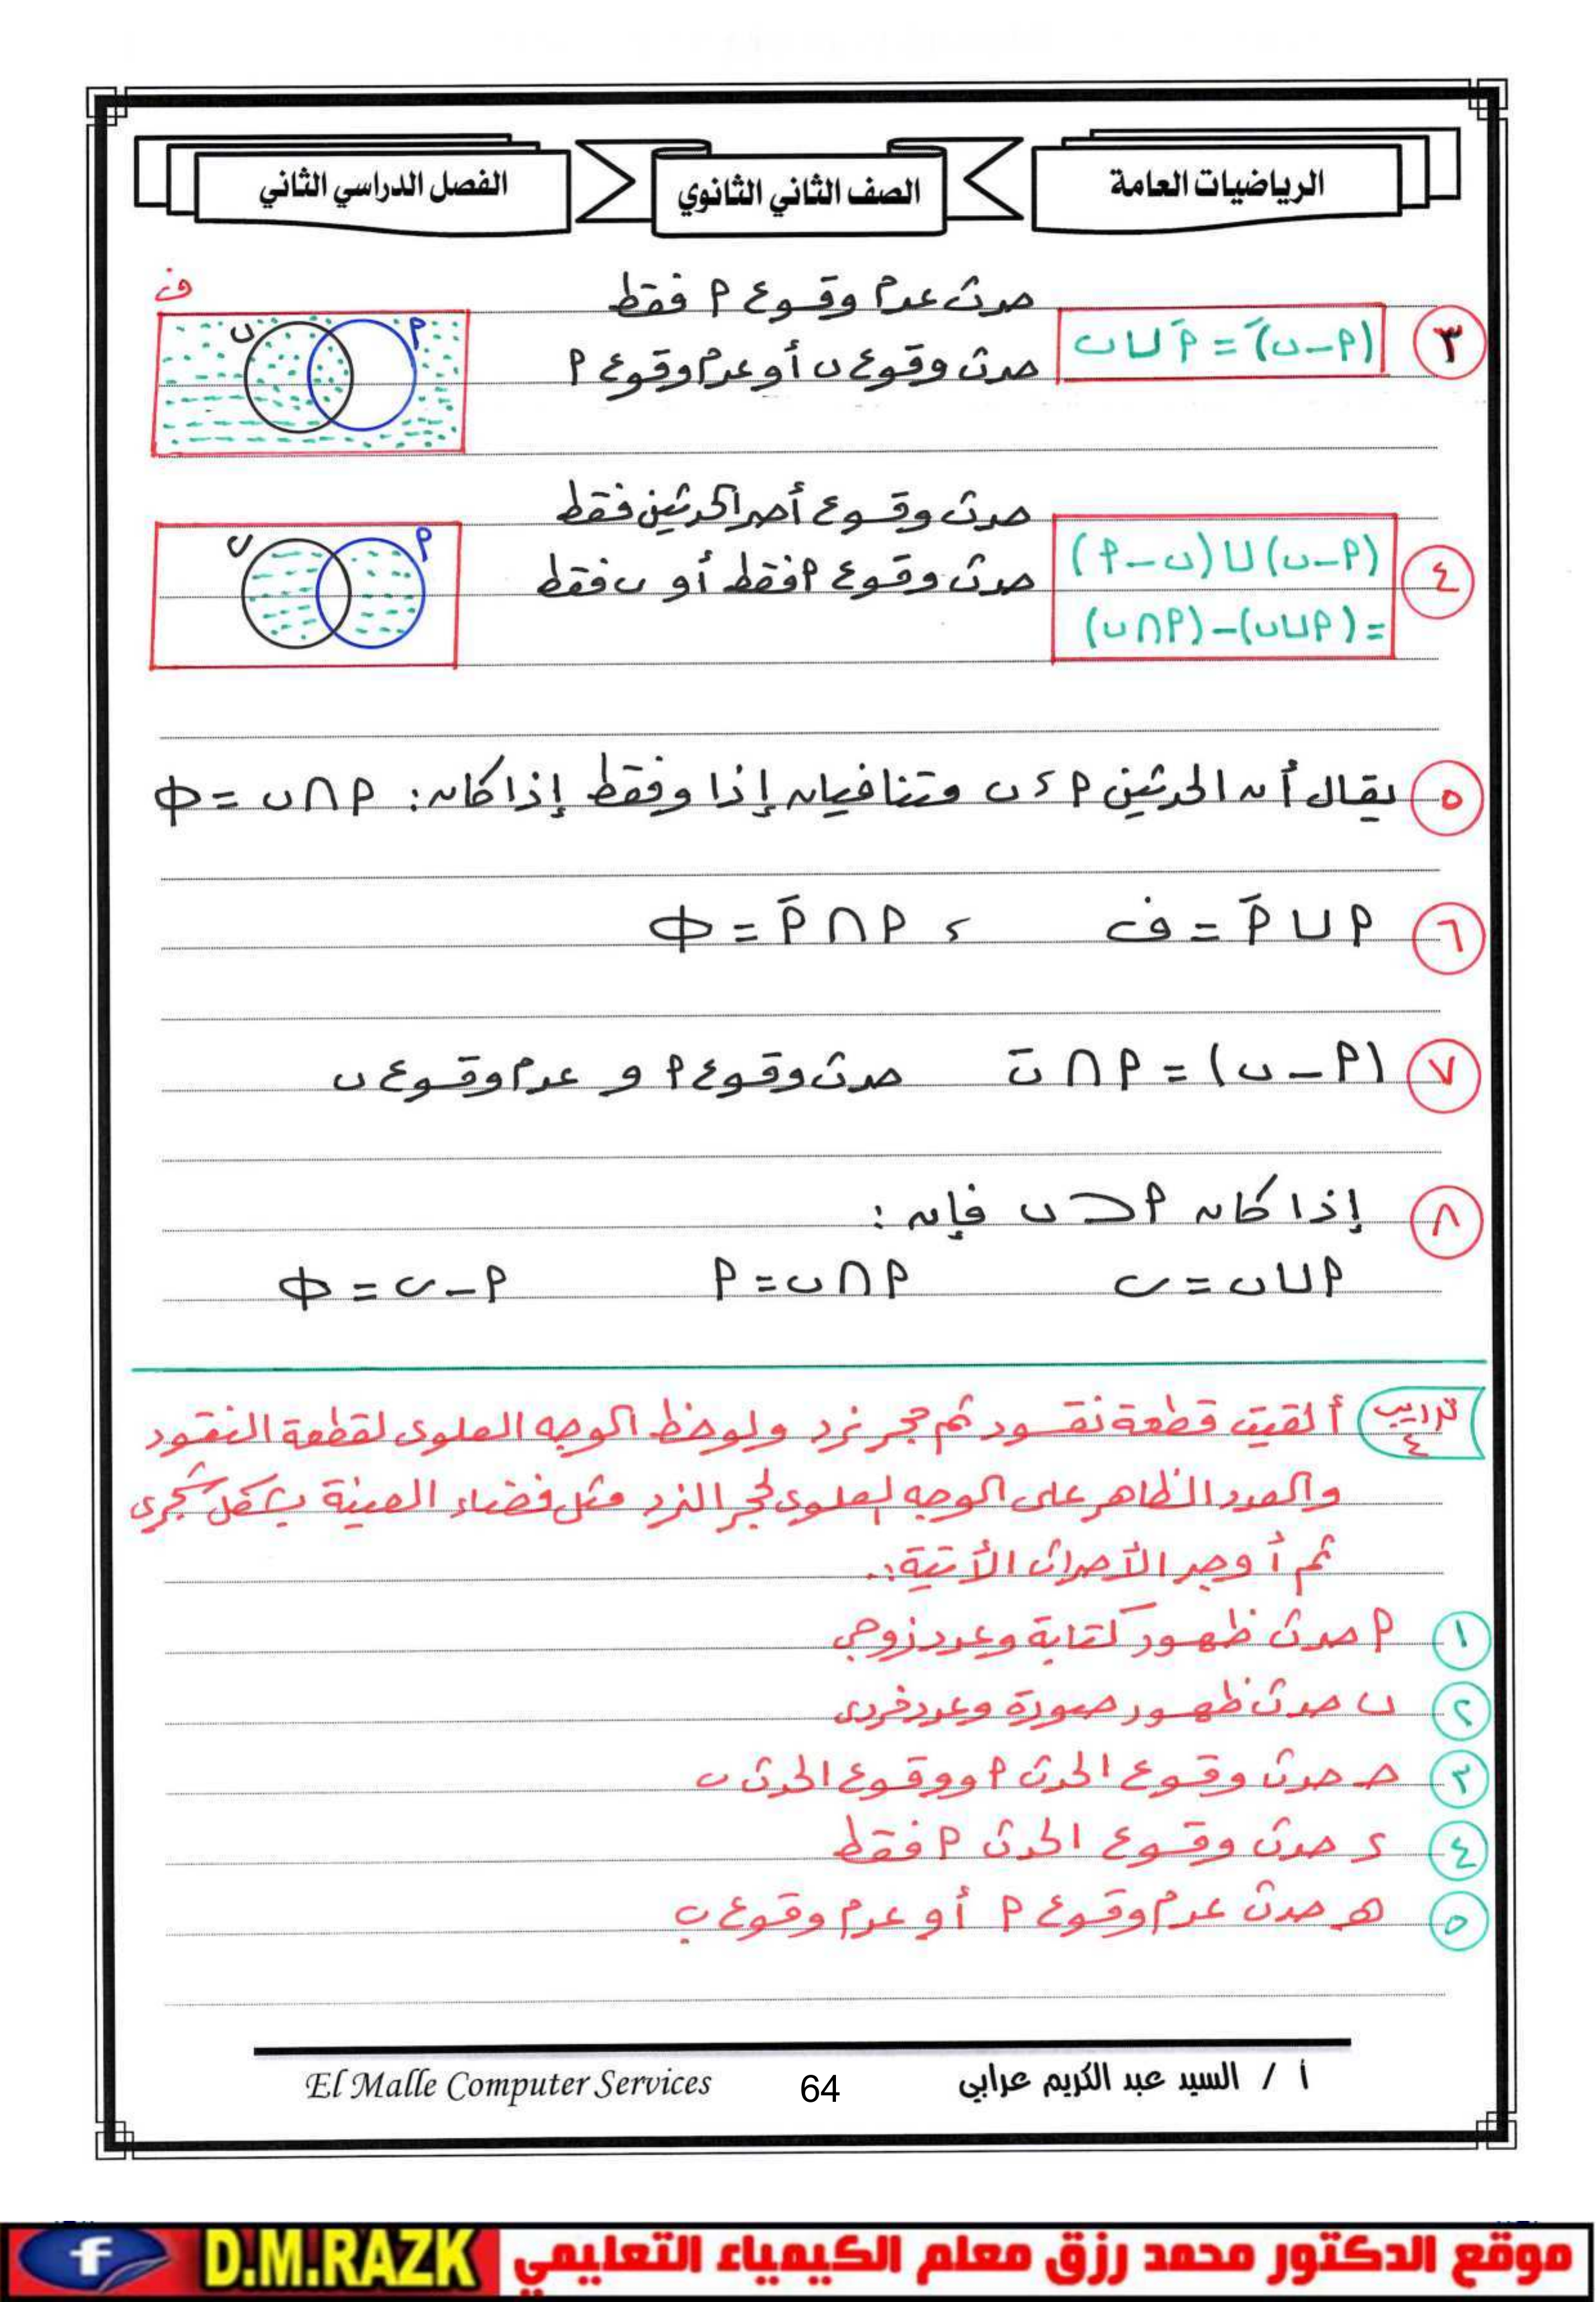 الرياضيات العامة
الصف الثاني الثانوي
الفصل الدراسي الثاني
٣
(P − ں)َ = Pَ ∪ ں
حدث عدم وقوع P فقط
حدث وقوع ں أو عدم وقوع P
ف
P
ں
٤
(P − ں) ∪ (ں − P)
= (P ∪ ں) − (P ∩ ں)
حدث وقوع أحد الحدثين فقط
حدث وقوع P فقط أو ں فقط
P
ں
٥ يقال أن الحدثين P ، ں متنافيان إذا وفقط إذا كان: P ∩ ں = Φ
٦ P ∪ Pَ = ف ، P ∩ Pَ = Φ
٧ (P − ں) = P ∩ ںَ حدث وقوع P و عدم وقوع ں
٨ إذا كان P ⊂ ں فإن :
P ∪ ں = ں P ∩ ں = P P − ں = Φ
تدريب ٤ ألقيت قطعة نقود ثم حجر نرد ولوحظ الوجه العلوى لقطعة النقود
والعدد الظاهر على الوجه العلوى لحجر النرد مثل فضاء العينة بشكل شجرى
ثم أوجد الأحداث الأتية:.
١ P حدث ظهور كتابة وعدد زوجي
٢ ں حدث ظهور صورة وعدد فردى
٣ حـ حدث وقوع الحدث P ووقوع الحدث ں
٤ د حدث وقوع الحدث P فقط
٥ هـ حدث عدم وقوع P أو عدم وقوع ب
أ / السيد عبد الكريم عرابي
64
El Malle Computer Services
موقع الدكتور محمد رزق معلم الكيمياء التعليمي
D.M.RAZK
f